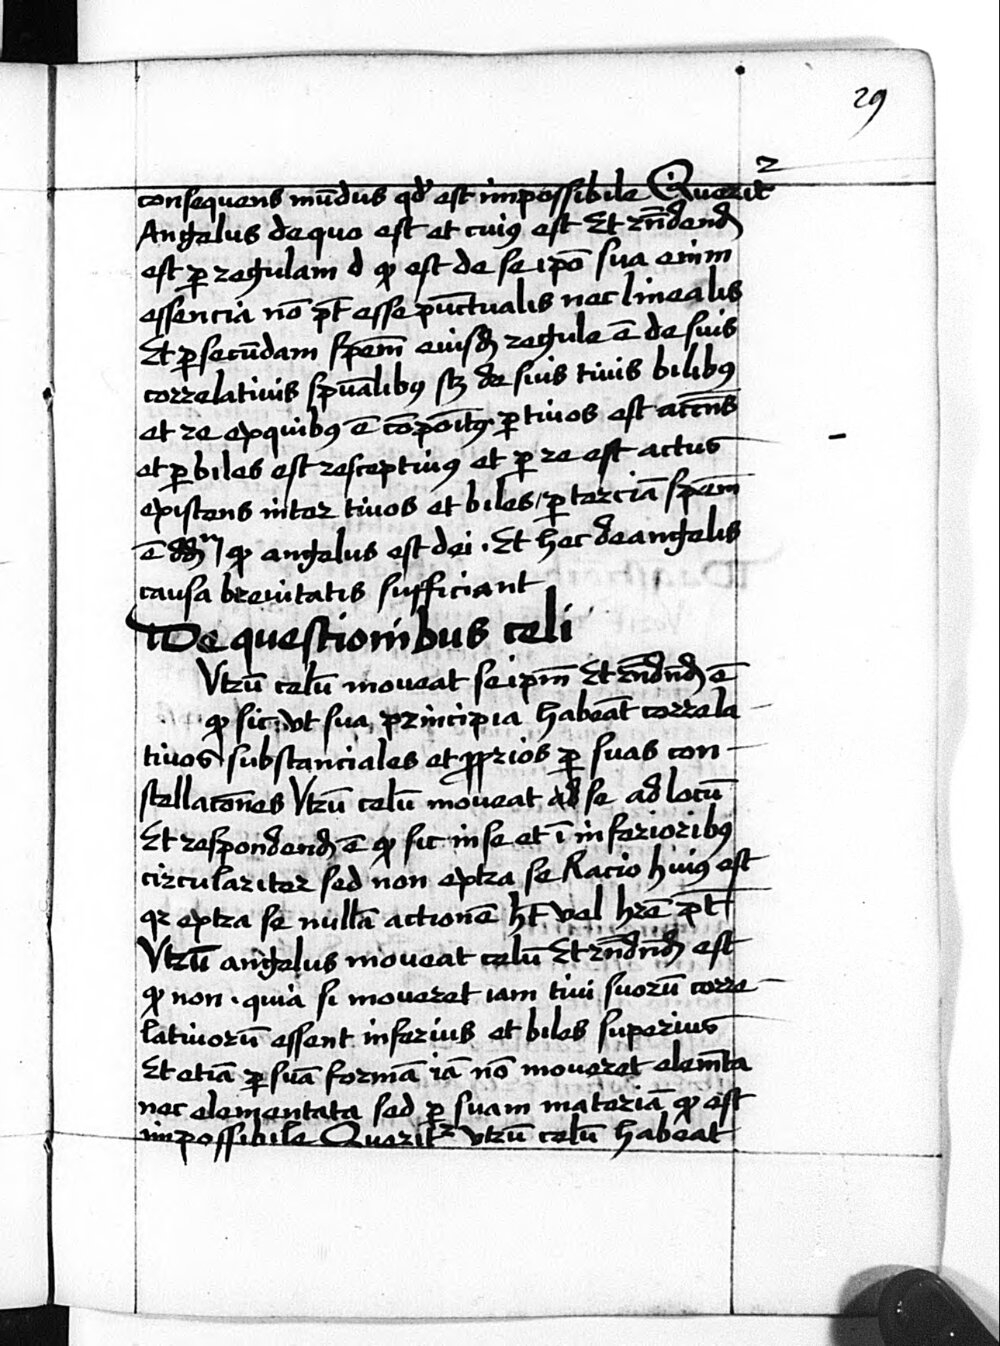 29
consequens mūdus qd' est impossibile Querit᷑
Angelus de quo est et cuiꝯ est Et rn̄dend̄
est ꝑ regulam d ꝙ est de se ip̄o sua enim
essencia nō pt̄ esse pūctualis nec linealis
Et ꝑ secūdam sp̄em eiusd̄ regule ē de suis
correlatiuis spūalibꝯ sꝫ de suis tiuis bilibꝯ
et re exquibꝯ ē cōpoītꝯ ꝑ tiuos est
et ꝑ biles est resceptiuꝯ et ꝑ re est actus
existens inter tiuos et biles / ꝑ terciā sp̄em
ē ꝙ angelus est dei . Et hec de angelis
causa breuitatis sufficiant
De questionibus celi
Vtrū celū moueat se ipm̄ Et rn̄dnd̄ ē
ꝙ sic, vt sua principia habeāt correla
tiuos substanciales et ꝓprios ꝑ suas con
stellacōnes Vtrū celū moueat ad se ad locū
Et respondend̄ ē ꝙ sic in se et ī inferioribꝯ
circulariter sed non extra se Racio huiꝯ est
qr extra se nullā actionē hꝫ vel hrē pt̄
Vtrū angelus moueat celū Et rn̄dnd̄ est
ꝙ non . quia si moueret iam tiui suorū corre
latiuorū essent inferius et biles superius
Et etiā ꝑ suā formā iā nō moueret elemēta
nec elementata sed ꝑ suam materiā ꝙ est
impossibile Querit᷑ vtrū celū habeat